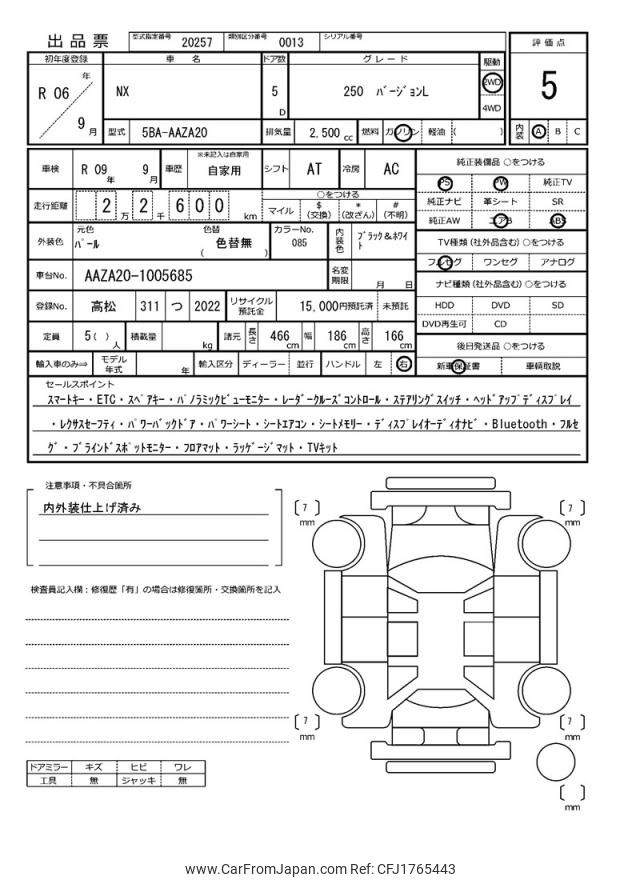 出品票 型式指定番号 20257 類別区分番号 0013 シリアル番号
初年度登録 車 名 ドア数 グレード 駆動 評価点
R 06 年 9 月 NX 5 D 250 バージョンL 2WD 4WD 5
型式 5BA-AAZA20 排気量 2,500 cc 燃料 ガソリン 軽油 ( ) 内装 A B C
車検 R 09 年 9 月 車歴 ※未記入は自家用 自家用 シフト AT 冷房 AC
純正装備品 ○をつける
PS PW 純正TV
純正ナビ 革シート SR
純正AW エアB ABS
走行距離 2 万 2 千 6 0 0 km ○をつける マイル $ (交換) * (改ざん) # (不明)
外装色 元色 パール 色替 色替無 ( ) カラーNo. 085 内装色 ブラック&ホワイト
TV種類 (社外品含む) ○をつける
フルセグ ワンセグ アナログ
車台No. AAZA20-1005685 名変期限 月 日
ナビ種類 (社外品含む) ○をつける
HDD DVD SD
DVD再生可 CD
登録No. 高松 311 つ 2022 リサイクル預託金 15,000円預託済 未預託
定員 5 ( ) 人 積載量 kg 諸元 長さ 466 cm 幅 186 cm 高さ 166 cm
後日発送品 ○をつける
新車保証書 車輌取説
輸入車のみ⇒ モデル年式 年 輸入区分 ディーラー 並行 ハンドル 左 右
セールスポイント
スマートキー・ETC・スペアキー・パノラミックビューモニター・レーダークルーズコントロール・ステアリングスイッチ・ヘッドアップディスプレイ
・レクサスセーフティ・パワーバックドア・パワーシート・シートエアコン・シートメモリー・ディスプレイオーディオナビ・Bluetooth・フルセ
グ・ブラインドスポットモニター・フロアマット・ラッゲージマット・TVキット
注意事項・不具合箇所
内外装仕上げ済み
7 mm
7 mm
検査員記入欄：修復歴「有」の場合は修復箇所・交換箇所を記入
7 mm
7 mm
ドアミラー キズ ヒビ ワレ
工具 無 ジャッキ 無
mm
www.CarFromJapan.com Ref: CFJ1765443